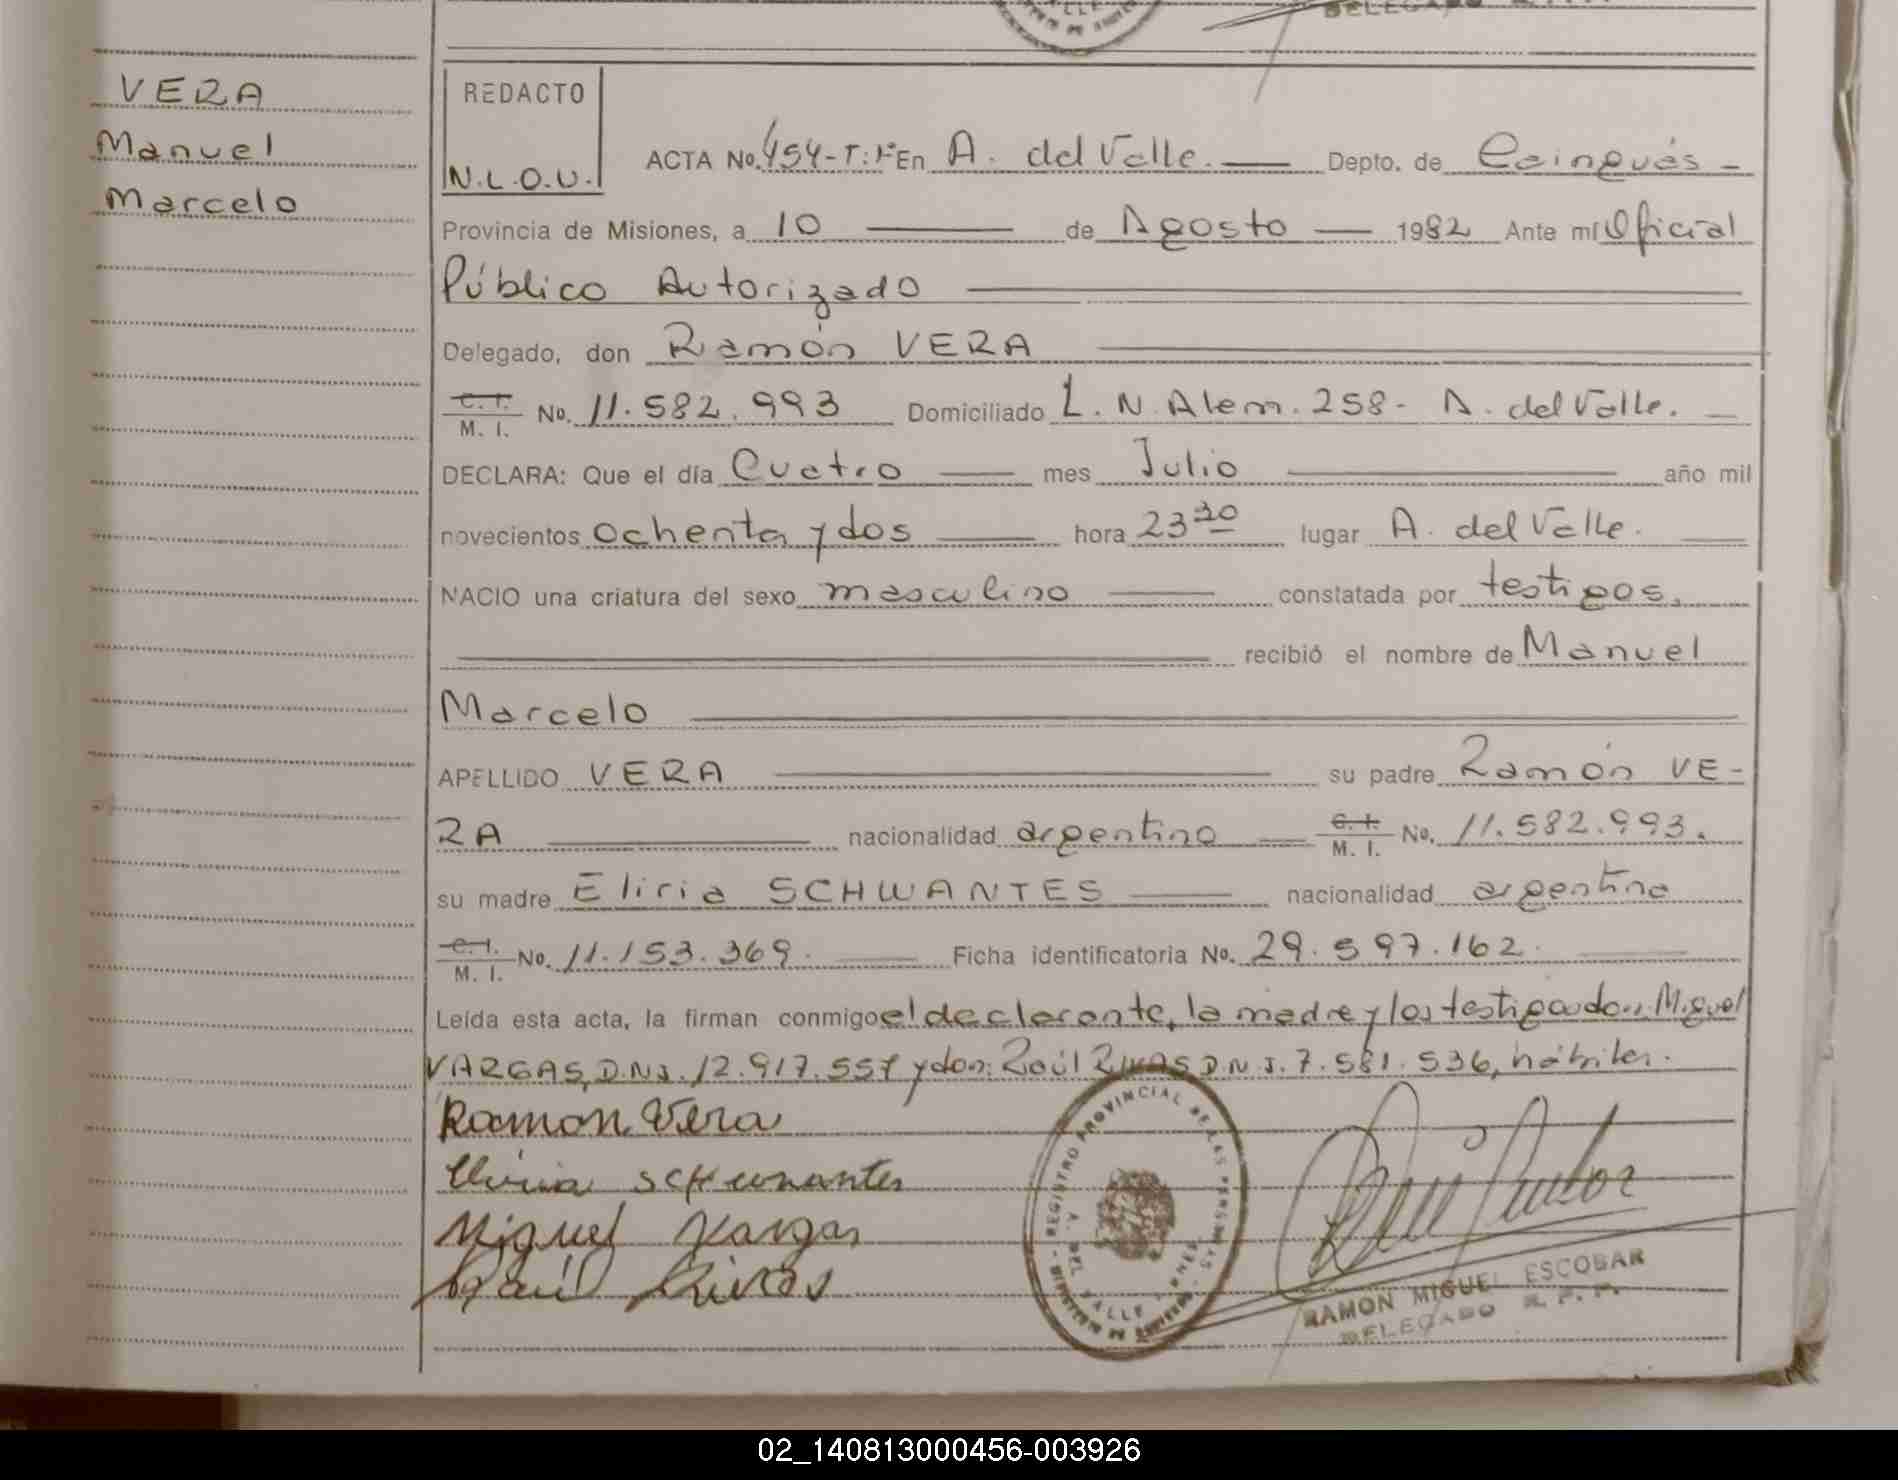 VERA
Manuel
Marcelo
REDACTO
N.L.O.U.
ACTA No. 454-T:1º En A. del Valle. Depto. de Cainguás
Provincia de Misiones, a 10 de Agosto 1982 Ante mí Oficial
Público Autorizado
Delegado, don Ramón VERA
C. I. M. I. No. 11.582.993 Domiciliado L. N. Alem. 258- A. del Valle.
DECLARA: Que el día Cuatro mes Julio año mil
novecientos ochenta y dos hora 23 lugar A. del Valle.
NACIO una criatura del sexo masculino constatada por testigos.
recibió el nombre de Manuel
Marcelo
APELLIDO VERA su padre Ramón VE-
RA nacionalidad argentino C. I. M. I. No. 11.582.993.
su madre Eliria SCHWANTES nacionalidad argentina
C. I. M. I. No. 11.153.369. Ficha identificatoria No. 29.597.162.
Leída esta acta, la firman conmigo el declarante, la madre y los testigos don: Miguel
VARGAS, D.N.I. 12.917.557 y don: Raúl RIVAS D.N.I. 7.581.536, hábiles.
Ramon Vera
Eliria Schwantes
Miguel Vargas
Raúl Rivas
REGISTRO PROVINCIAL DE LAS PERSONAS
DEL VALLE
RAMON MIGUEL ESCOBAR
DELEGADO R. P. P.
02_140813000456-003926